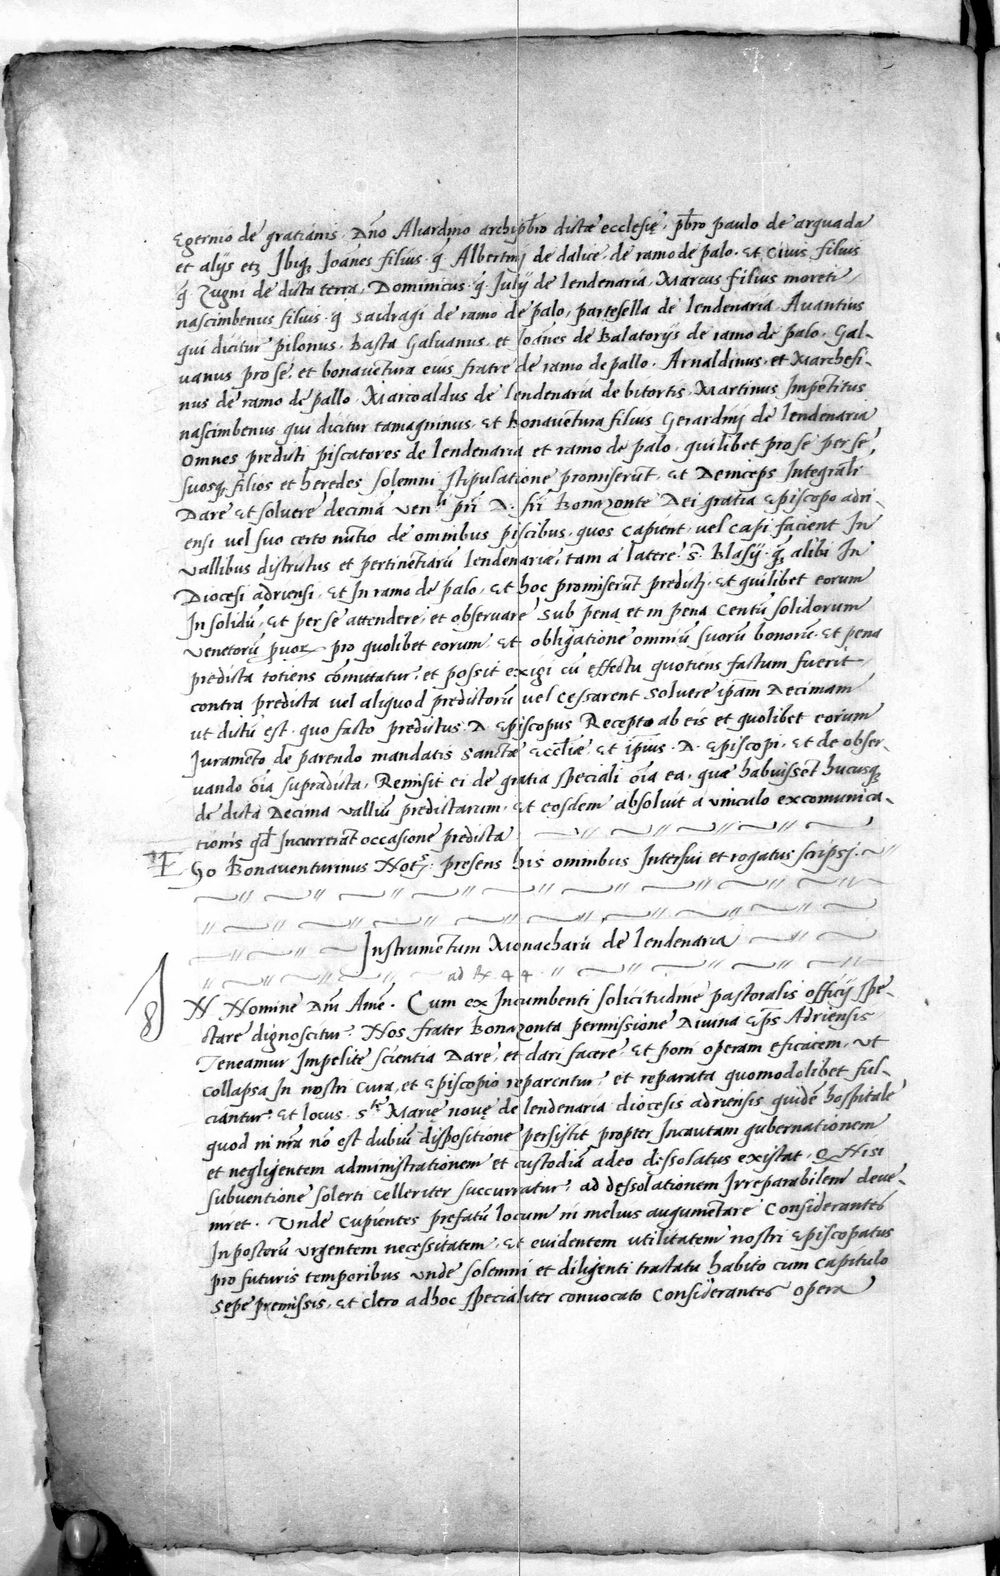 Egernio de gratianis. Dño Aliardino archipbro dictæ ecclesię, pbro paulo de arquada
et alijs etz Ibiqz Joanes filius q Albertinj de dalice, de ramo de palo. et Ciuis filius
q Zugni de dicta terra, Dominicus q Julij de lendenaria, Marcus filius moreti
nascimbenus filius q Saidragi de ramo de palo, partesella de lendenaria Auantius
qui dicitur pilonus, Basta Galuanus et Joãnes de Balatorijs de ramo de palo. Gal-
uanus pro se, et bonauetura eius fratre de ramo de pallo. Arnaldinus et Marchesi-
nus de ramo de pallo Marcoaldus de lendenaria de bitortis. Martinus Impetitus
nascimbenus qui dicitur tamagninus. et bonauetura filius Gerardinj de lendenaria
Omnes preducti piscatores de lendenaria et ramo de palo, quilibet pro se per se,
suosqz filios et heredes solemni stipulatione promiserũt, et Deinceps Integrali
Dare et soluere decimã ven.li pri D. fri Bonazonte Dei gratia episcopo adri
ensi uel suo certo nũtio de omnibus piscibus, quos capient, uel capi facient In
vallibus districtus et pertinẽtiarũ lendenariæ, tam á latere S. Blasij qz alibi In
Diocesi adriensi, et In ramo de palo, et hoc promiserũt predictj, et quilibet eorum
In solidũ, et per se attendere, et obseruare sub pena et in pena Centũ solidorum
venetorũ paruorz pro quolibet eorum, et obligatione omniũ suorũ bonorũ, et pena
predicta totiens comittatur, et possit exigi cũ effectu quotiens factum fuerit
contra predicta uel aliquod predictorũ uel cessarent soluere ipam Decimam
ut dictũ est. quo facto predictus D. Episcopus Recepto ab eis et quolibet eorum
Juramẽto de parendo mandatis sanctæ ecclie et ipius D. episcopi, et de obser-
uando oia supradicta, Remisit ei de gratia speciali oia ea, quæ habuissẽt hucusqz
de dicta Decima valliũ predictarum, et eosdem absoluit a vinculo excomunica-
tionis qd Incurrerãt occasione predicta
Ego Bonauenturinus Not. presens his omnibus Interfui et rogatus scripsj.
Instrumẽtum Monacharũ de lendenaria
ad 44
IN Nomine Dni Amẽ. Cum ex Incumbenti solicitudine pastoralis officij spe-
ctare dignoscitur, Nos frater Bonazonta permissione Diuina eps Adriensis
Teneamur Impelite scientia Dare, et dari facere, et poni operam eficacem, ut
collapsa In nostri cura, et episcopio reparentur, et reparata quomodolibet ful-
ciantur, et locus S.te Marię nouę de lendenaria diocesis adriensis quidẽ hospitale
quod in nra nõ est dubiũ dispositione persistit propter Incautam gubernationem
et negligentem administrationem et custodiã adeo dissolatus existat, q Nisi
subuentione solerti celleriter succurratur, ad dessolationem Irreparabilem deue-
niret. Unde cupientes prefatũ locum in melius augumẽtare Considerantes
In posterũ urgentem necessitatem, et euidentem utilitatem nostri episcopatus
pro futuris temporibus unde solemni et diligenti tractatu habito cum capitulo
sepe premissis, et clero ad hoc specialiter conuocato Considerantes opera